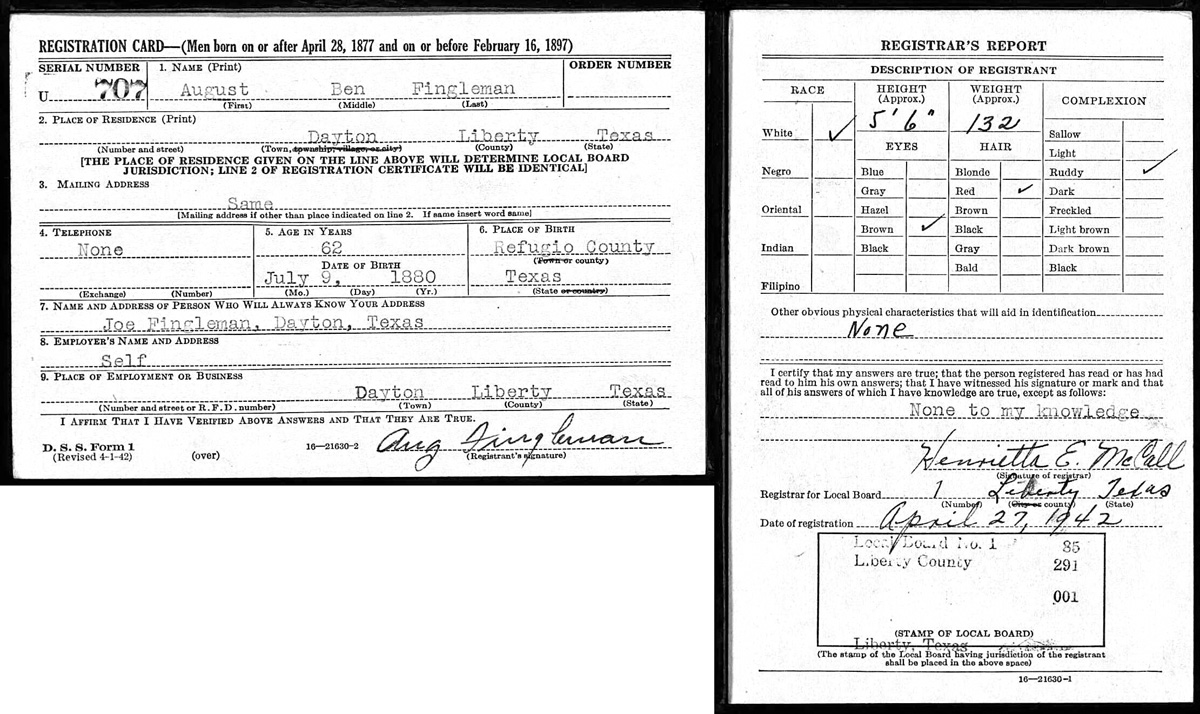 REGISTRATION CARD—(Men born on or after April 28, 1877 and on or before February 16, 1897)
SERIAL NUMBER
1. NAME (Print)
ORDER NUMBER
U 707
August Ben Fingleman
(First) (Middle) (Last)
2. PLACE OF RESIDENCE (Print)
Dayton Liberty Texas
(Number and street) (Town, township, village, or city) (County) (State)
[THE PLACE OF RESIDENCE GIVEN ON THE LINE ABOVE WILL DETERMINE LOCAL BOARD
JURISDICTION; LINE 2 OF REGISTRATION CERTIFICATE WILL BE IDENTICAL]
3. MAILING ADDRESS
Same
[Mailing address if other than place indicated on line 2. If same insert word same]
4. TELEPHONE
None
(Exchange) (Number)
5. AGE IN YEARS
62
DATE OF BIRTH
July 9, 1880
(Mo.) (Day) (Yr.)
6. PLACE OF BIRTH
Refugio County
(Town or county)
Texas
(State or country)
7. NAME AND ADDRESS OF PERSON WHO WILL ALWAYS KNOW YOUR ADDRESS
Joe Fingleman, Dayton, Texas
8. EMPLOYER'S NAME AND ADDRESS
Self
9. PLACE OF EMPLOYMENT OR BUSINESS
Dayton Liberty Texas
(Number and street or R. F. D. number) (Town) (County) (State)
I AFFIRM THAT I HAVE VERIFIED ABOVE ANSWERS AND THAT THEY ARE TRUE.
D. S. S. Form 1
(Revised 4-1-42) (over)
16—21630-2
Aug Fingleman
(Registrant's signature)
REGISTRAR'S REPORT
DESCRIPTION OF REGISTRANT
RACE
White ✓
Negro
Oriental
Indian
Filipino
HEIGHT
(Approx.)
5' 6"
WEIGHT
(Approx.)
132
EYES
Blue
Gray
Hazel
Brown ✓
Black
HAIR
Blonde
Red ✓
Brown
Black
Gray
Bald
COMPLEXION
Sallow
Light
Ruddy ✓
Dark
Freckled
Light brown
Dark brown
Black
Other obvious physical characteristics that will aid in identification
None
I certify that my answers are true; that the person registered has read or has had
read to him his own answers; that I have witnessed his signature or mark and that
all of his answers of which I have knowledge are true, except as follows:
None to my knowledge
Henrietta E. McCall
(Signature of registrar)
Registrar for Local Board 1 Liberty Texas
(Number) (City or county) (State)
Date of registration April 27, 1942
Local Board No. 1 35
Liberty County 291
001
(STAMP OF LOCAL BOARD)
Liberty, Texas
(The stamp of the Local Board having jurisdiction of the registrant
shall be placed in the above space)
16—21630-1